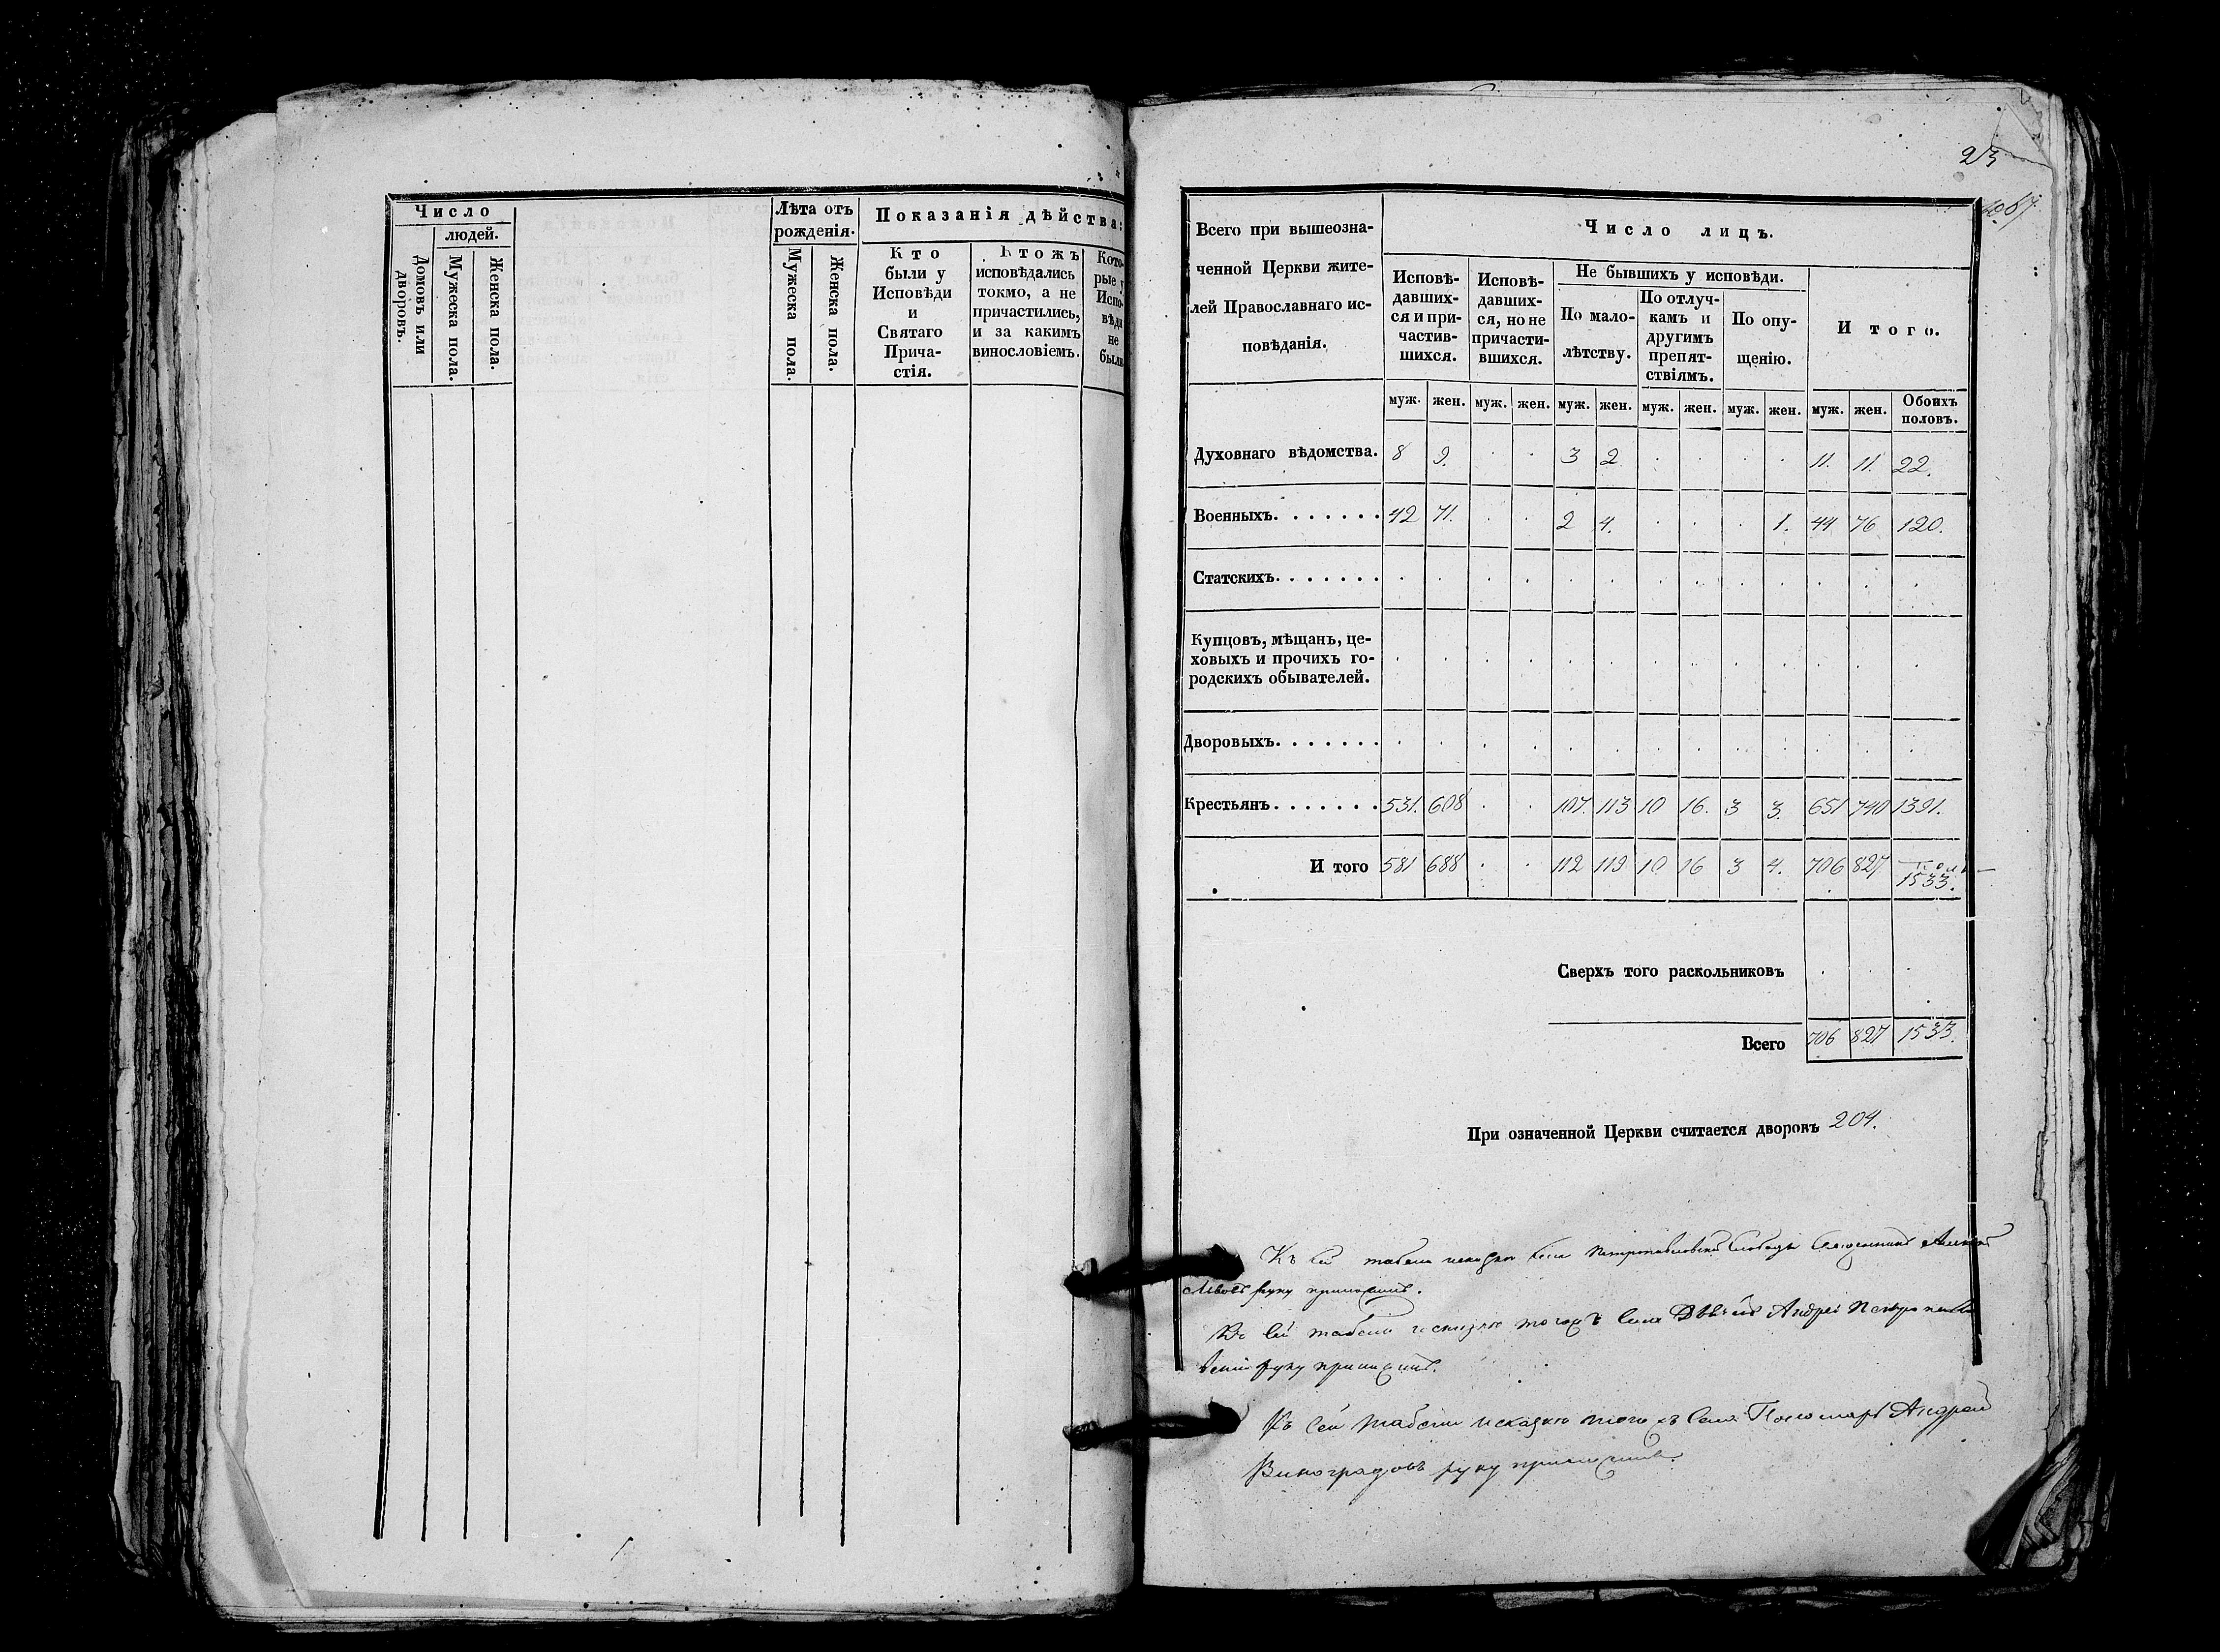 Число
людей.
Домовъ или дворовъ.
Мужеска пола.
Женска пола.
Лѣта отъ рожденія.
Мужеска пола.
Женска пола.
Показанія дѣйства:
Кто
были у
Исповѣди
и
Святаго
Прича-
стія.
Ктожъ
исповѣдались
токмо, а не
причастились,
и за какимъ
винословіемъ.
Кото-
рые у
Испо-
вѣди
не
были
23
Всего при вышеозна-
ченной Церкви жите-
лей Православнаго ис-
повѣданія.
Число лицъ.
Исповѣ-
давших-
ся и при-
частив-
шихся.
Исповѣ-
давших-
ся, но не
причасти-
вшихся.
Не бывшихъ у исповѣди.
По мало-
лѣтству.
По отлуч-
камъ и
другимъ
препят-
ствіямъ.
По опу-
щенію.
И того.
муж. жен. муж. жен. муж. жен. муж. жен. муж. жен. муж. жен. Обоихъ половъ.
Духовнаго вѣдомства. 8 9. . . 3 2 . . . . 11. 11. 22.
Военныхъ. . . . . . . 42 71. . . 2 4. . . . 1. 44 76 120.
Статскихъ. . . . . . . . . . . . . . . . . . . .
Купцовъ, мѣщанъ, це-
ховыхъ и прочихъ го-
родскихъ обывателей. . . . . . . . . . . . . .
Дворовыхъ. . . . . . . . . . . . . . . . . . . .
Крестьянъ. . . . . . . 531. 608 . . 107. 113 10 16. 3 3. 651 740 1391.
И того 581 688 . . 112 119 10 16 3 4. 706 827 1533.
Сверхъ того раскольниковъ . . .
Всего 706 827 1533.
При означенной Церкви считается дворовъ 204.
Къ сей табели исказкѣ села слободы Священникъ
Львовъ руку приложилъ.
Къ сей табели исказкѣ тогожъ села Андрей
руку приложилъ.
Къ сей табели исказкѣ того жъ села Пономарь Андрей
Виноградовъ руку приложилъ.